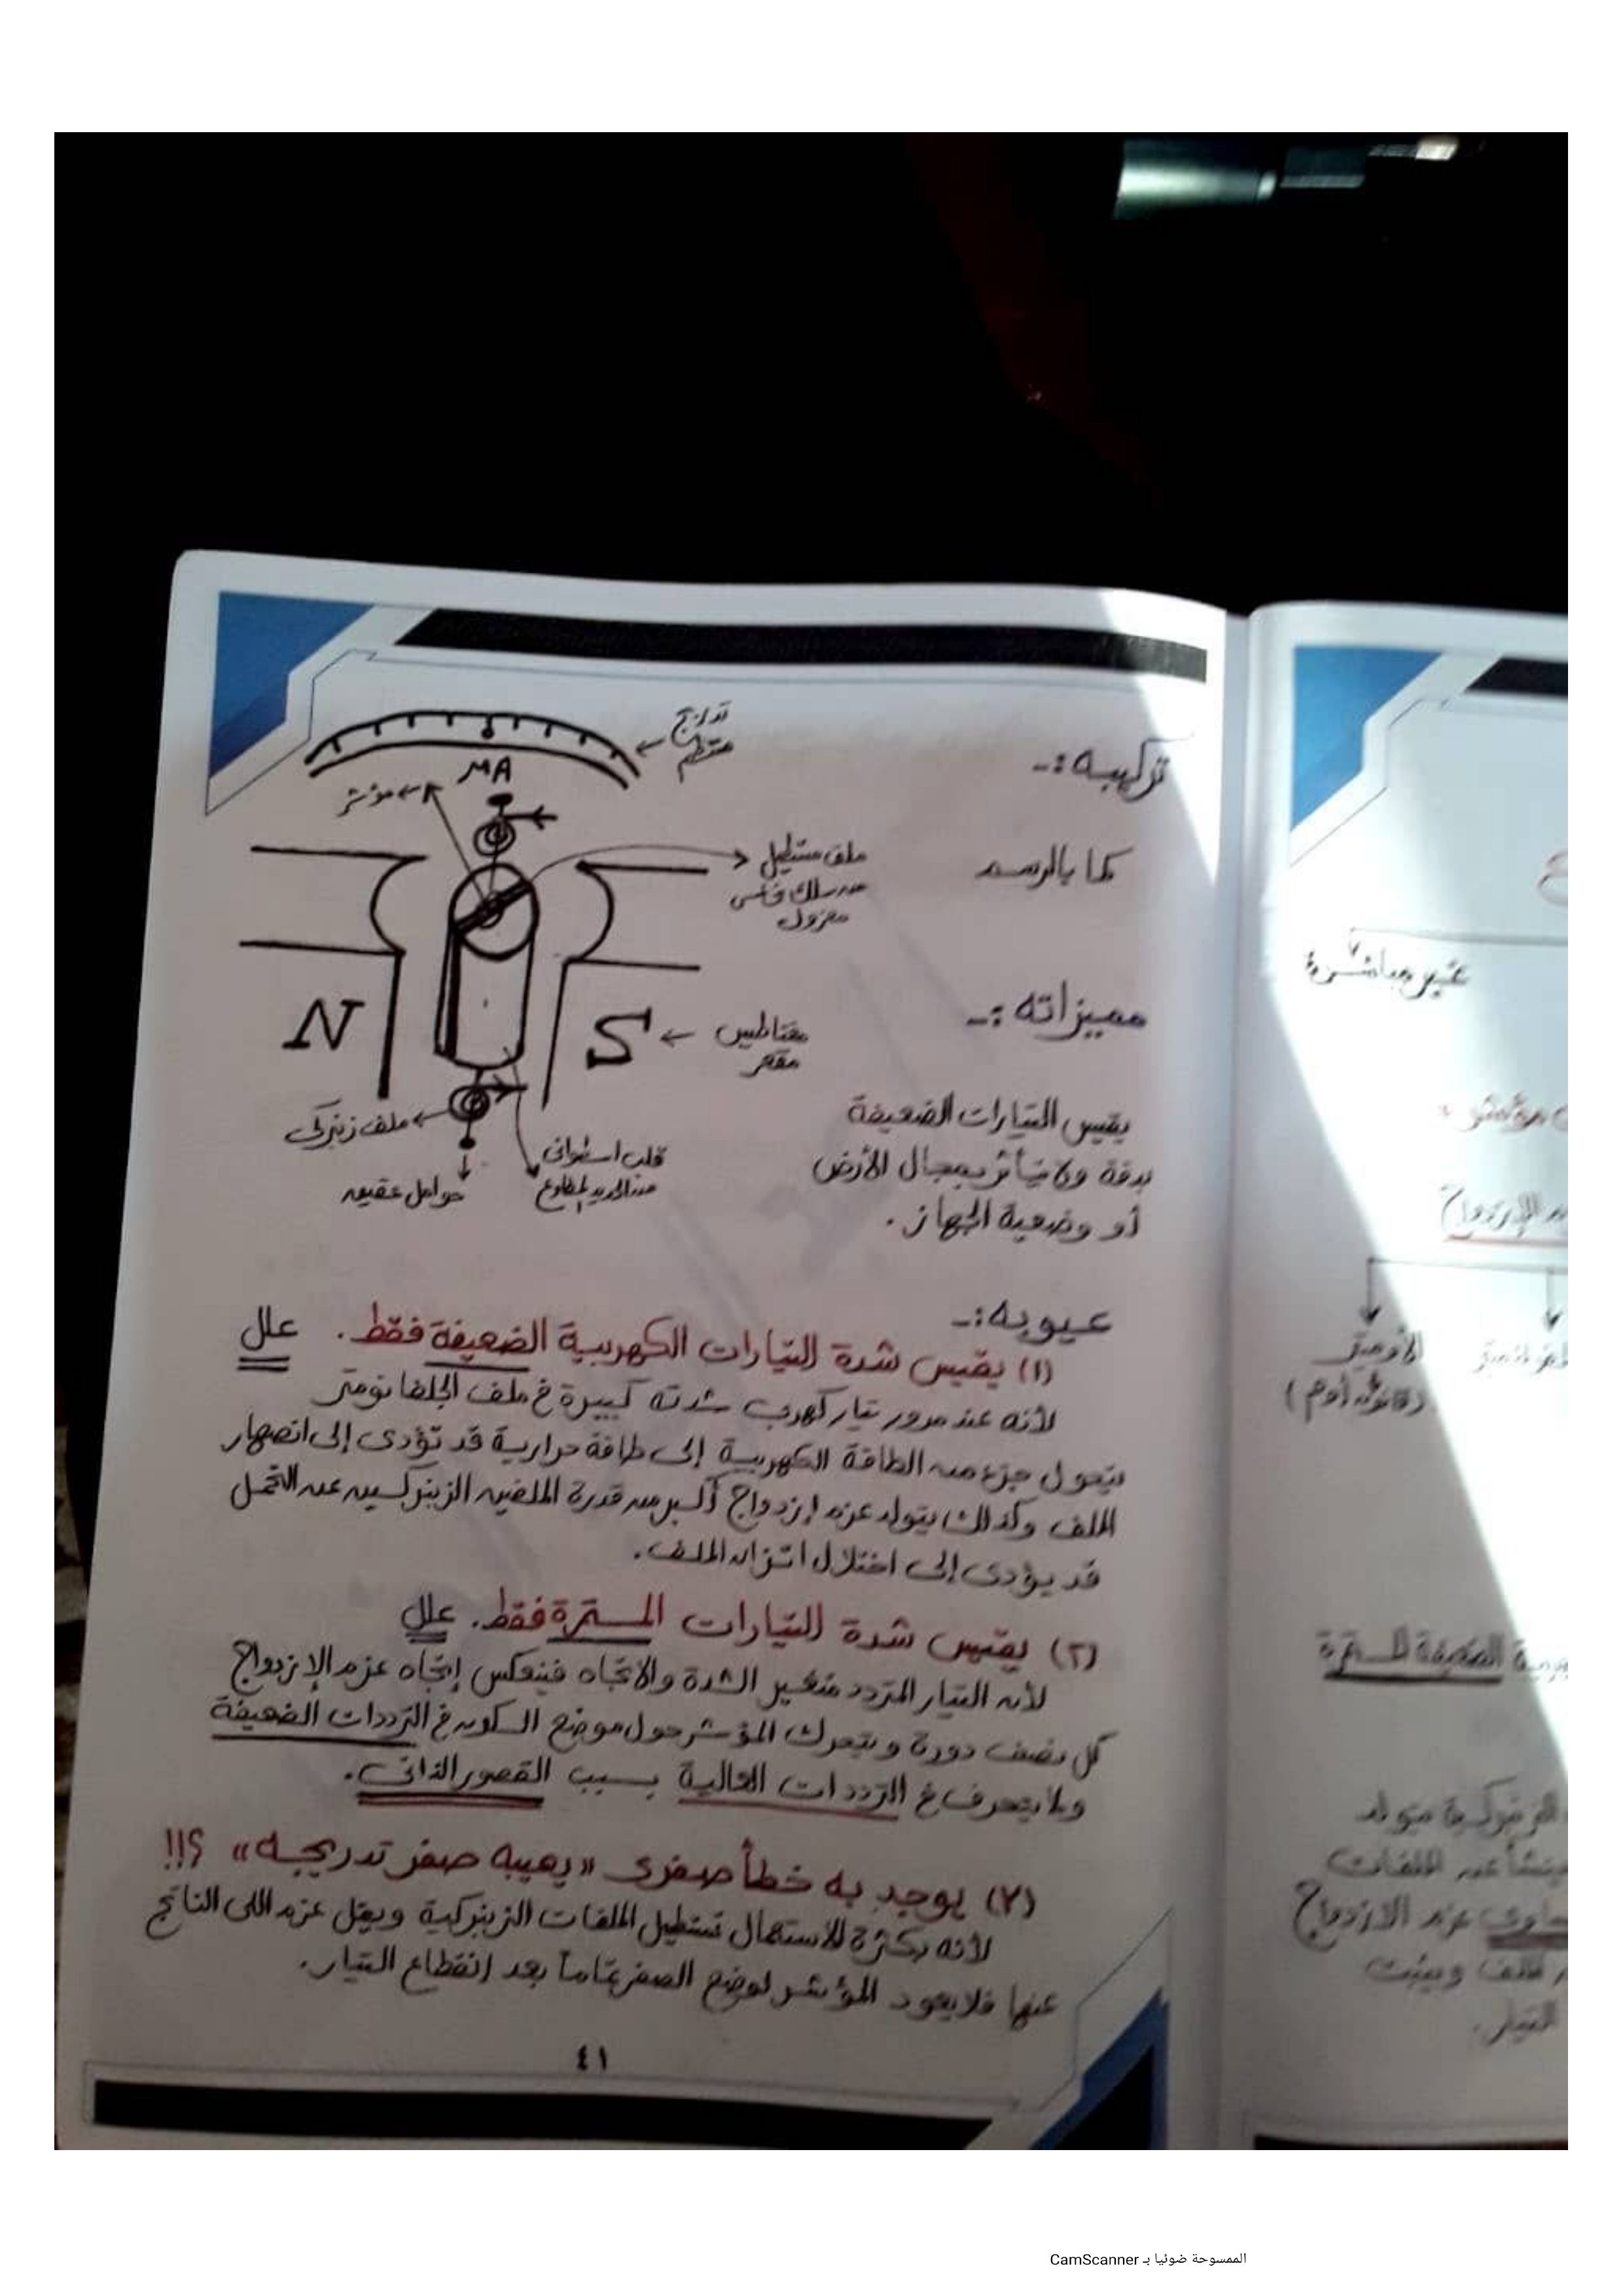 تركيبه :-
كما بالرسم
تدريج
منتظم
MA
مؤشر
ملف مستطيل
من سلك نحاس
معزول
N
S
مغناطيس
مقعر
ملف زنبركى
قلب اسطوانى
من الحديد المطاوع
حوامل عقيق
مميزاته :-
يقيس التيارات الضعيفة
بدقة ولا يتأثر بمجال الأرض
أو وضعية الجهاز .
عيوبه :-
(١) يقيس شدة التيارات الكهربية الضعيفة فقط . علل
لأنه عند مرور تيار كهربى شدته كبيرة فى ملف الجلفانومتر
يتحول جزء من الطاقة الكهربية إلى طاقة حرارية قد تؤدى إلى انصهار
الملف وكذلك يتولد عزم إزدواج أكبر من قدرة الملفين الزنبركيين عن التحمل
قد يؤدى إلى اختلال اتزان الملف .
(٢) يقيس شدة التيارات المستمرة فقط . علل
لأن التيار المتردد متغير الشدة والاتجاه فينعكس إتجاه عزم الإزدواج
كل نصف دورة ويتحرك المؤشر حول موضع السكون فى الترددات الضعيفة
ولا ينحرف فى الترددات العالية بسبب القصور الذاتى .
(٣) يوجد به خطأ صفرى « يعيبه صفر تدريجه » ؟!!
لأنه بكثرة الاستعمال تستطيل الملفات الزنبركية ويقل عزم اللى الناتج
عنها فلا يعود المؤشر لوضع الصفر تماماً بعد إنقطاع التيار .
٤١
غير مباشرة
الأوميتر
(قانون أوم)
الضعيفة المستمرة
الزنبركية يتولد
ينشأ عن الملفات
عزم الازدواج
الملف ويثبت
التيار .
الممسوحة ضوئيا بـ CamScanner